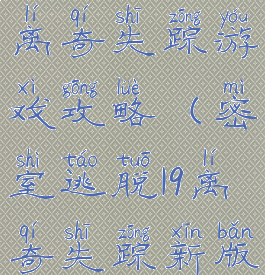 lí qí shī zōng yóu
离奇失踪游
xì gōng lüè mì
戏攻略(密
shì táo tuō lí
室逃脱19离
qí shī zōng xīn bǎn
奇失踪新版